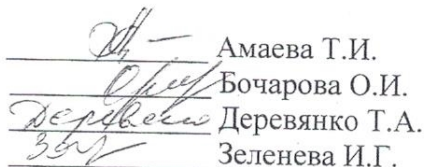 Амаева Т.И.
Бочарова О.И.
Деревянко Т.А.
Зеленева И.Г.